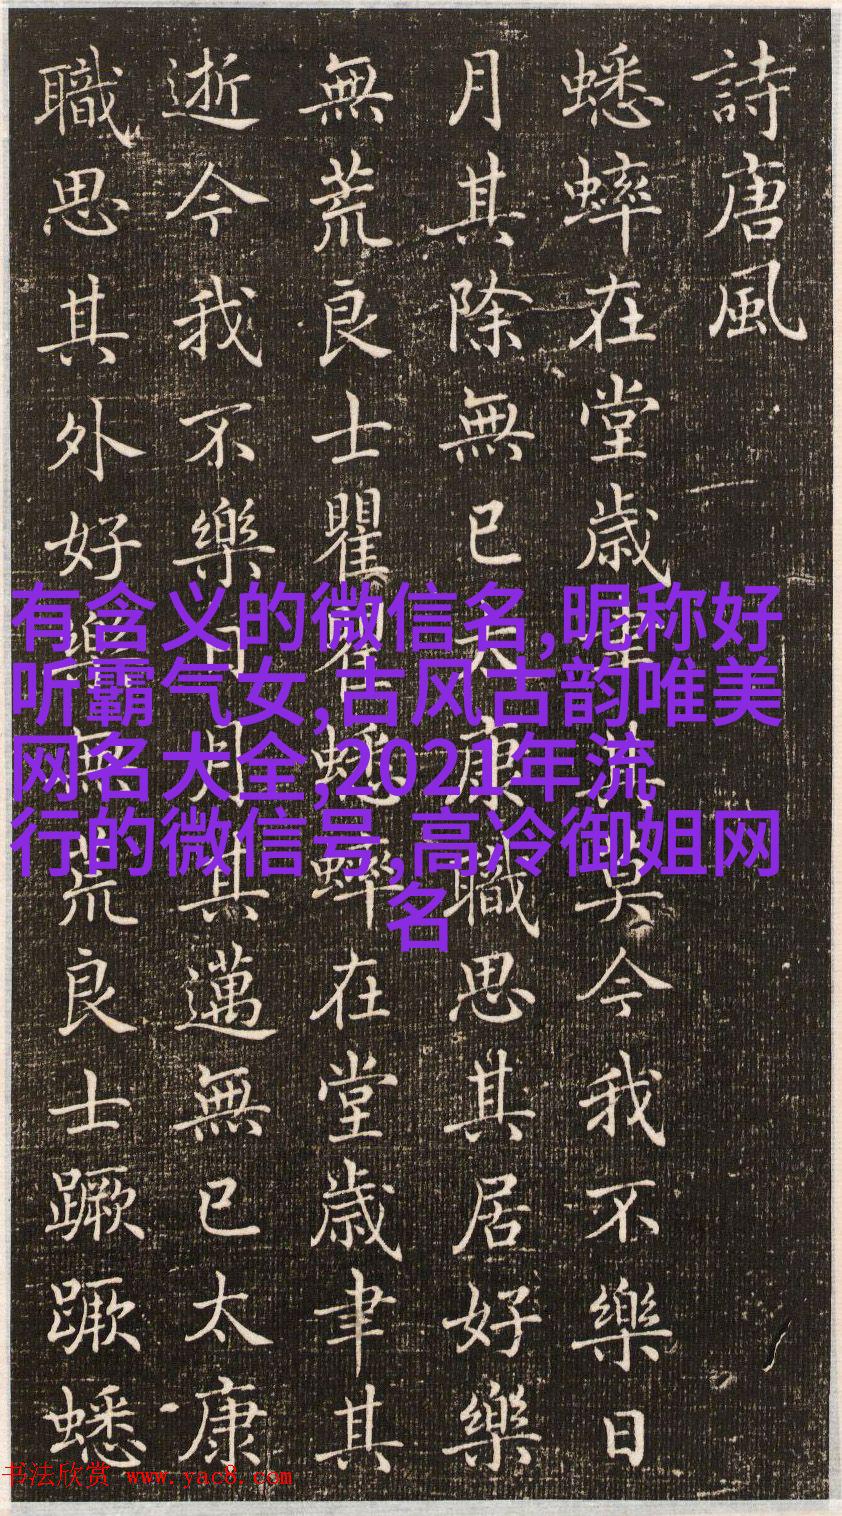 詩唐風
蟋蟀在堂歳聿其莫今我不樂日
月其除無已大康職思其居好樂
無荒良士瞿瞿蟋蟀在堂歳聿其
逝今我不樂日月其邁無已太康
職思其外好樂無荒良士蹶蹶蟋
有含义的微信名,昵称好
听霸气女,古风古韵唯美
网名大全,2021年流
行的微信号,高冷御姐网
名
书法欣赏 www.yac8.com